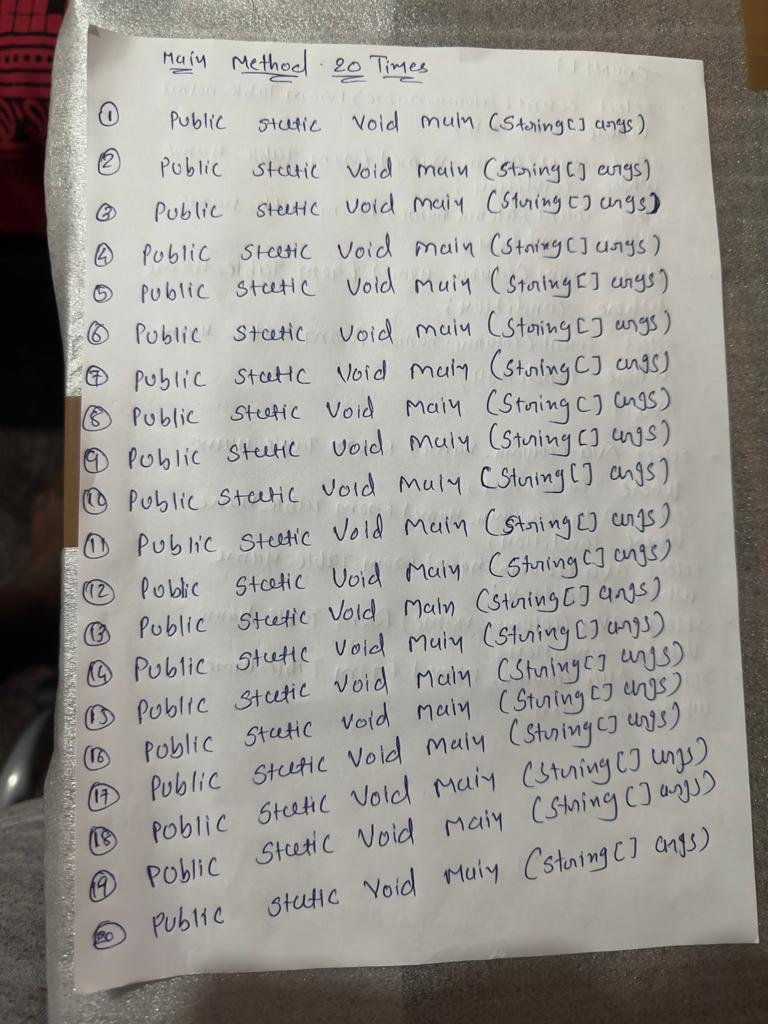 Main Method 20 Times
① Public static void main (String[] args)
② Public static void main (String[] args)
③ Public static void main (String[] args)
④ Public static void main (String[] args)
⑤ Public static void main (String[] args)
⑥ Public static void main (String[] args)
⑦ Public static void main (String[] args)
⑧ Public static void main (String[] args)
⑨ Public static void main (String[] args)
⑩ Public static void main (String[] args)
⑪ Public static void main (String[] args)
⑫ Public static void main (String[] args)
⑬ Public static void main (String[] args)
⑭ Public static void main (String[] args)
⑮ Public static void main (String[] args)
⑯ Public static void main (String[] args)
⑰ Public static void main (String[] args)
⑱ Public static void main (String[] args)
⑲ Public static void main (String[] args)
⑳ Public static void main (String[] args)